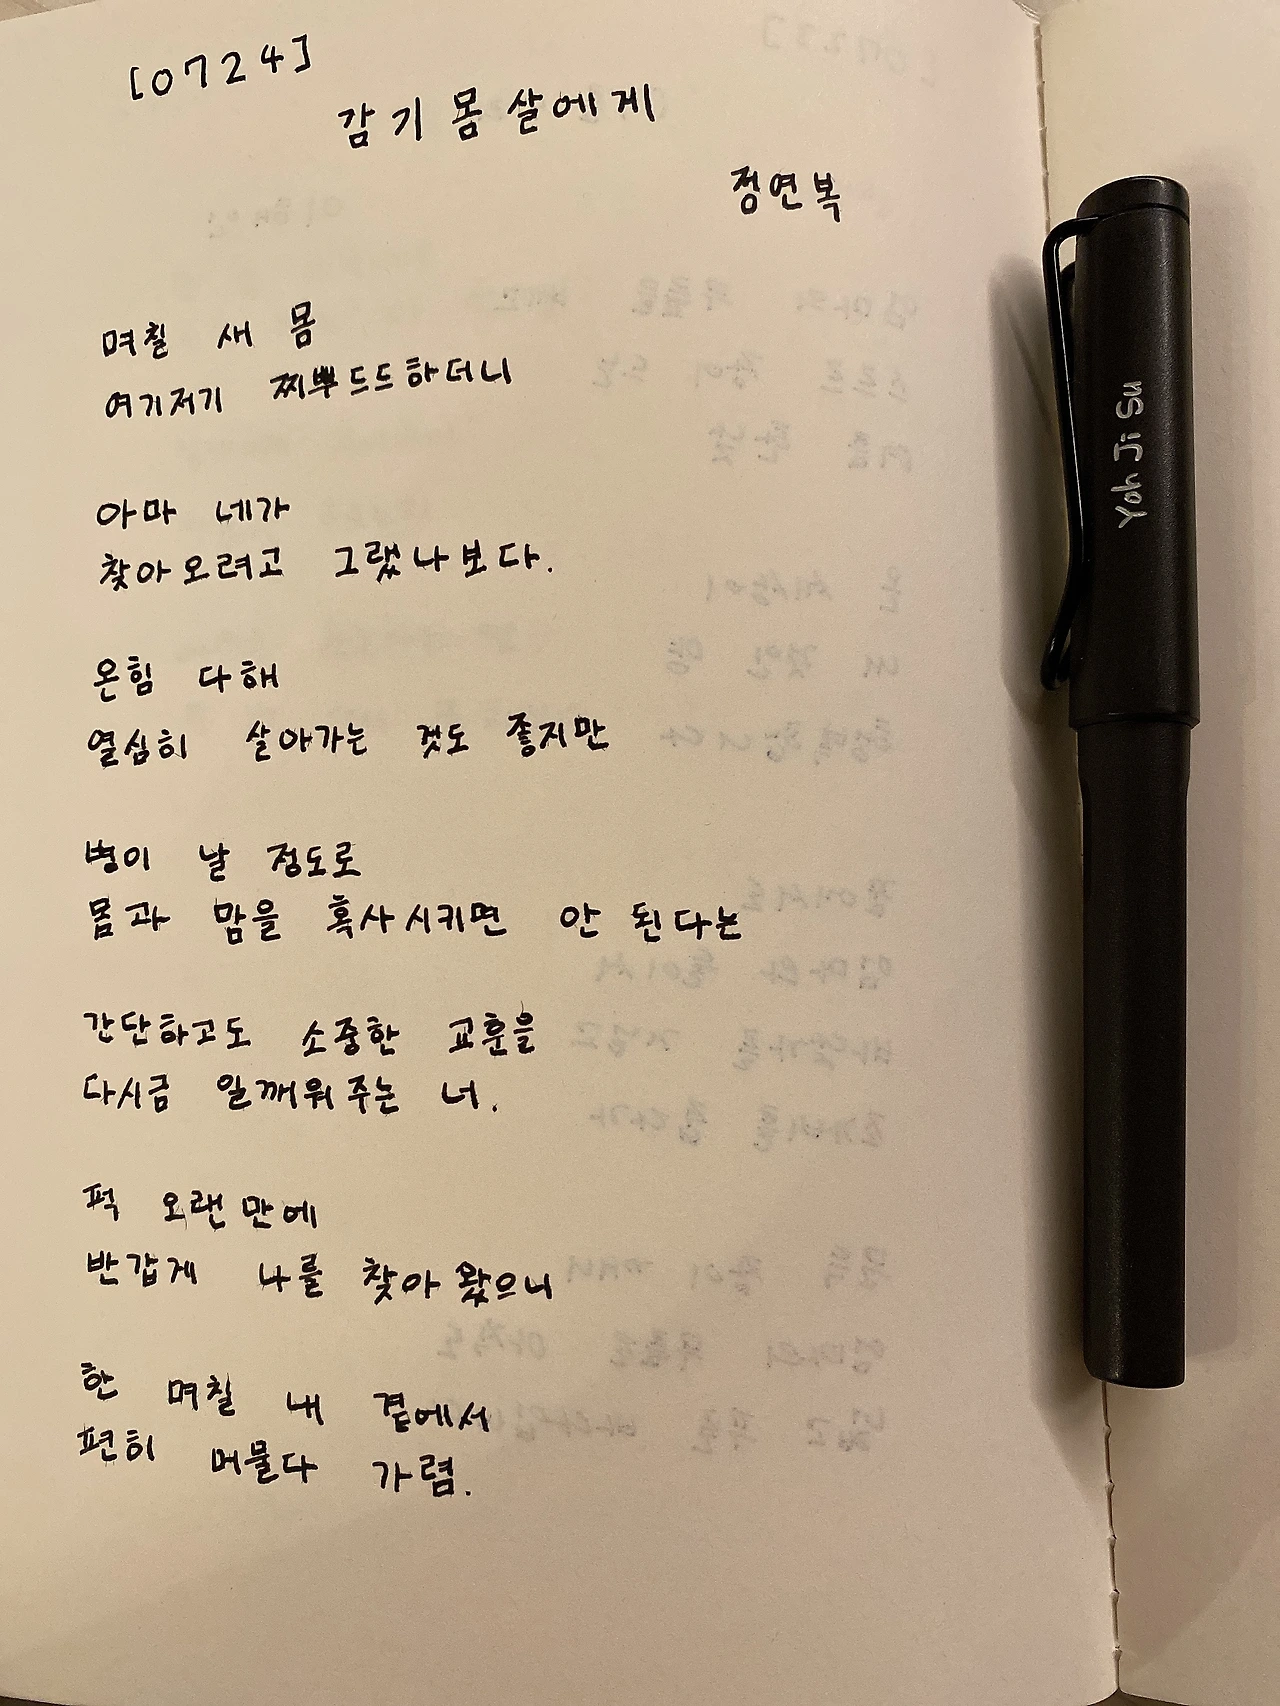 [0724]
감기 몸살에게
정연복
며칠 새 몸
여기저기 찌뿌드드하더니
아마 네가
찾아오려고 그랬나보다.
온힘 다해
열심히 살아가는 것도 좋지만
병이 날 정도로
몸과 맘을 혹사시키면 안 된다는
간단하고도 소중한 교훈을
다시금 일깨워주는 너.
퍽 오랜만에
반갑게 나를 찾아왔으니
한 며칠 내 곁에서
편히 머물다 가렴.
Yoh Ji Su